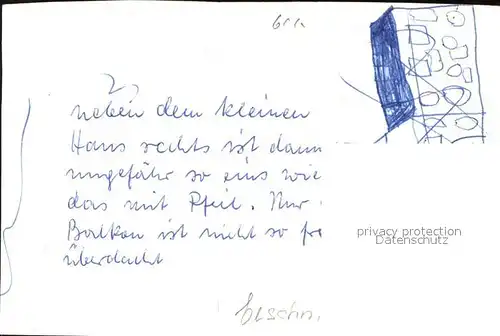 2,
neben dem kleinen
Haus rechts ist dann
ungefähr so eins wie
das mit Pfeil. Nur
Balkon ist nicht so
überdacht
privacy protection
Datenschutz